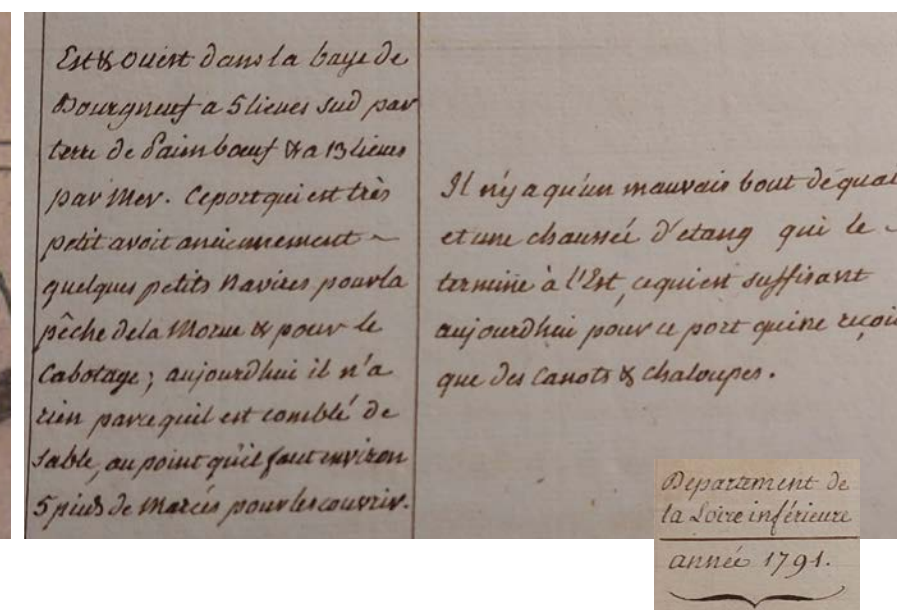 Est & Ouest dans la baye de
Bourgneuf a 5 lieues sud par
terre de Painbœuf & a 13 lieues
par Mer. Ce port qui est très
petit avoit anciennement ~
quelques petits Navires pour la
pêche de la Morue & pour le
Cabotage; aujourdhui il n'a
rien parcequil est comblé de
sable, au point qu'il faut environ
5 pieds de Marées pour les couvrir.
Il n'y a qu'un mauvais bout de quai
et une chaussée d'etang qui le -
termine à l'Est, ce qui est suffisant
aujourdhui pour ce port qui ne reçoi
que des Canots & chaloupes.
Departement de
la Loire inférieure
année 1791.